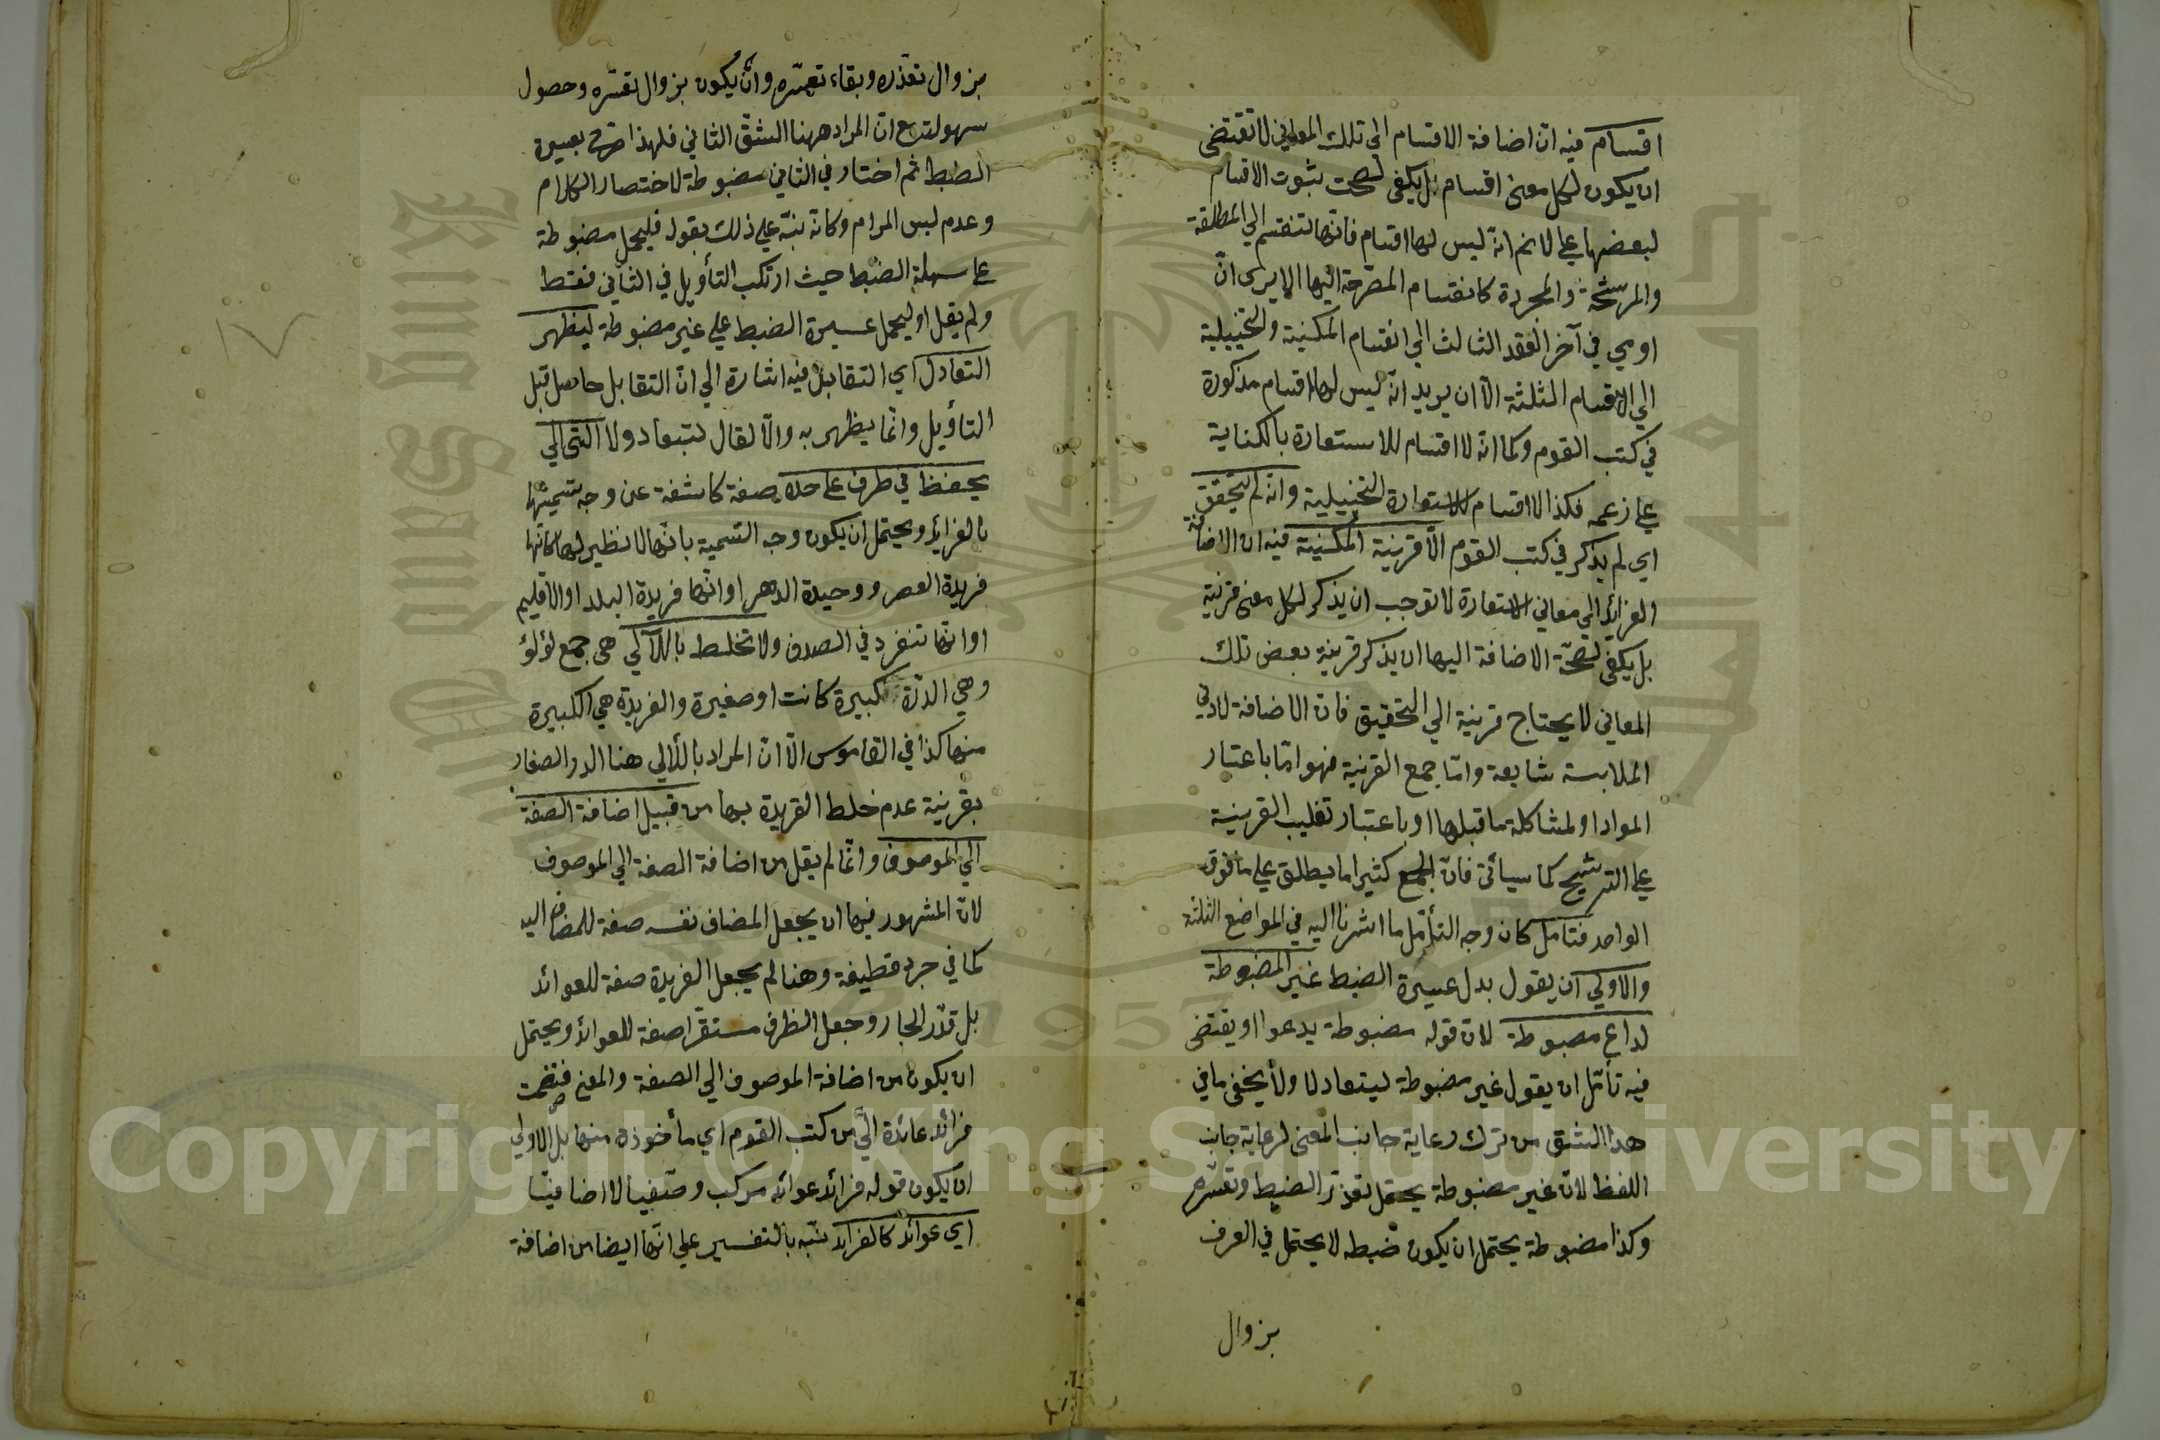 اقسام فيه ان اضافة الاقسام الى تلك المعاني لا تقتضى
ان يكون لكل معنى اقسام بل يكفى لصحت ثبوت الاقسام
لبعضها على لانم انه ليس لها اقسام فانها تنقسم الى المطلقة
والمرشحة والمجردة كانقسام المصرحة اليها الا يرى انّ
اومي في آخر الفقد الثالث الى انقسام المكنية والتخييلية
الى الاقسام الثلثة الا ان يريد انه ليس لها اقسام مذكورة
في كتب القوم وكما انه لا اقسام للاستعارة بالكناية
على زعمه فكذا لا اقسام للاستعارة التخييلية وانه لم يتحقق
اى لم يذكر في كتب القوم الا قرينة المكنية فيه ان الاضافة
الفرائد الى معاني الاستعارة لا توجب ان يذكر لكل معنى قرينة
بل يكفى لصحّة الاضافة اليها ان يذكر قرينة بعض تلك
المعاني لا يحتاج قرينة الى التحقيق فان الاضافة لادنى
الملابسة شايعة واما جمع القرينة فهو اما باعتبار
المواد او لمشاكلة ما قبلها او باعتبار تغليب القرينة
على الترشيح كما سيأتى فان الجمع كثيرا ما يطلق على ما فوق
الواحد فتامل كان وجه التأمّل ما اشرنا اليه في المواضع الثلثة
والاولى ان يقول بدل عسيرة الضبط غير المضبوطة
لداع مضبوطة لان قوله مضبوطة يدعو او يقتضى
فيه تأمّل ان يقول غير مضبوطة ليتعادلا ولا يخفى ما في
هذا الشق من ترك رعاية جانب المعنى لرعاية جانب
اللفظ لان غير مضبوطة يحتمل تعذّر الضبط وتعسّره
وكذا مضبوطة يحتمل ان يكون ضبطه لا يحتمل في العرف
بزوال
بزوال تعذّره وبقاء تعسّره وان يكون بزوال تعسّره وحصول
سهولته مع ان المراد ههنا الشقّ الثاني فلهذا صرّح بعسيرة
الضبط ثم اختار في الثاني مضبوطة لاختصار الكلام
وعدم لبس المرام وكانه نبّه على ذلك بقوله فليحمل مضبوطة
على سهلة الضبط حيث ارتكب التأويل في الثاني فقط
ولم يقل او ليحمل عسيرة الضبط على غير مضبوطة ليظهر
التعادل اى التقابل فيه اشارة الى انّ التقابل حاصل قبل
التأويل وانما يظهر به والا لقال ليتعادولا التى
يحفظ في ظرف على حدة صفة كاشفة عن وجه تسميتها
بالفرايد ويحتمل ان يكون وجه التسمية بانها لا نظير لها كانها
فريدة العصر ووحيدة الدهر او انها فريدة البلد او الاقليم
او انها تنفرد في الصدف ولا تخلط باللآلى هى جمع لؤلؤ
وهى الدرّة كبيرة كانت او صغيرة والفريدة هى الكبيرة
منها كذا في القاموس الا ان المراد باللألى هنا الدر الصغار
بقرينة عدم خلط الفريدة بها من قبيل اضافة الصفة
الى الموصوف وانما لم يقل من اضافة الصفة الى الموصوف
لان المشهور فيها ان يجعل المضاف نفسه صفة للمضاف اليه
كما في جرد قطيفة وهنا لم يجعل الفريدة صفة للعوائد
بل قدّر الجار وجعل الظرف مستقرا صفة للعوائد ويحتمل
ان يكون من اضافة الموصوف الى الصفة والمعنى فنظمت
فرائد عائدة الىّ من كتب القوم اى مأخوذة منها بل الاولى
ان يكون قوله فرائد عوائد مركب وصفيا لا اضافيا
اى عوائد كالفرائد نبّه بالتفسير على انها ايضا من اضافة
Copyright © King Saud University
King Saud University
1957